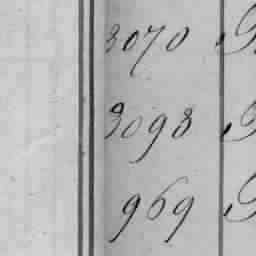 3070
3093
969